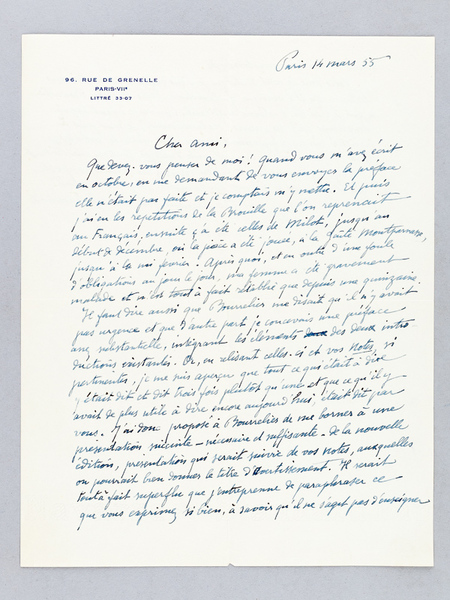 96. RUE DE GRENELLE
PARIS-VIIe
LITTRÉ 33-07
Paris 14 mars 55
Cher ami,
Que devez-vous penser de moi ! Quand vous m'avez écrit
en octobre, en me demandant de vous envoyer la préface
elle n'était pas faite et je comptais m'y mettre. Et puis
j'ai eu les répétitions de la Brouille que l'on reprenait
au Français, ensuite ç'a été celles de Milot, jusqu'au
début de décembre où la pièce a été jouée, à la Gaîté Montparnasse,
jusqu'à la mi février ! Après quoi, et en outre d'une foule
d'obligations au jour le jour, ma femme a été gravement
malade et n'est tout à fait rétablie que depuis une quinzaine.
Il faut dire aussi que Bourrelier me disait qu'il n'y avait
pas urgence et que d'autre part je concevais une préface
assez substantielle, intégrant les éléments des deux intro
ductions existantes. Or, en relisant celles-ci et vos notes, si
pertinentes, je me suis aperçu que tout ce qui était à dire
y était dit et dit trois fois plutôt qu'une et que ce qu'il y
avait de plus utile à dire encore aujourd'hui était dit par
vous. J'ai donc proposé à Bourrelier de me borner à une
présentation succincte – nécessaire et suffisante – de la nouvelle
édition, présentation qui serait suivie de vos notes, auxquelles
on pourrait bien donner le titre d'Avertissement. Il serait
tout à fait superflu que j'entreprenne de paraphraser ce
que vous exprimez si bien, à savoir qu'il ne s'agit pas d'enseigner